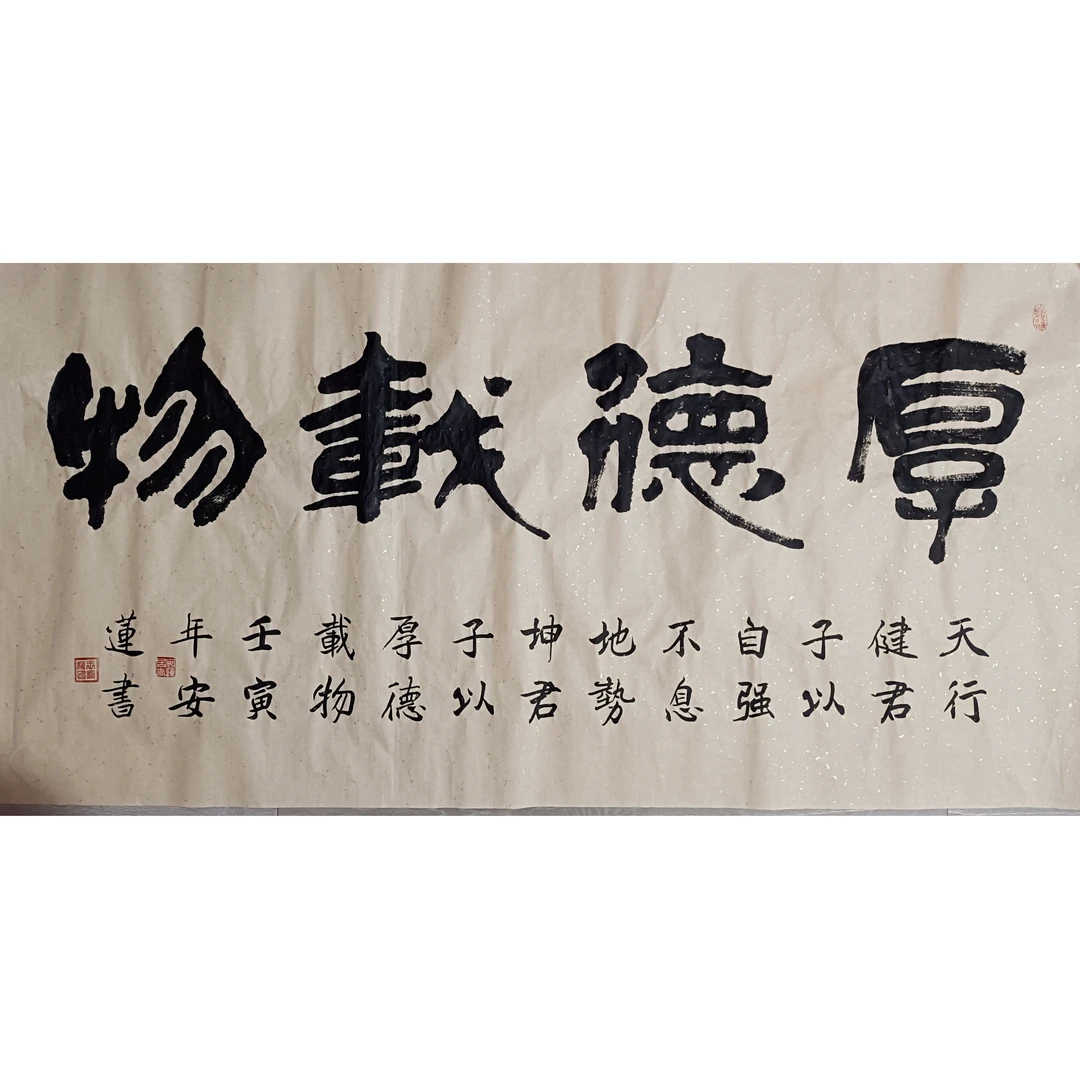 厚德載物
天行
健君
子以
自强
不息
地勢
坤君
子以
厚德
載物
壬寅
年安
蓮書